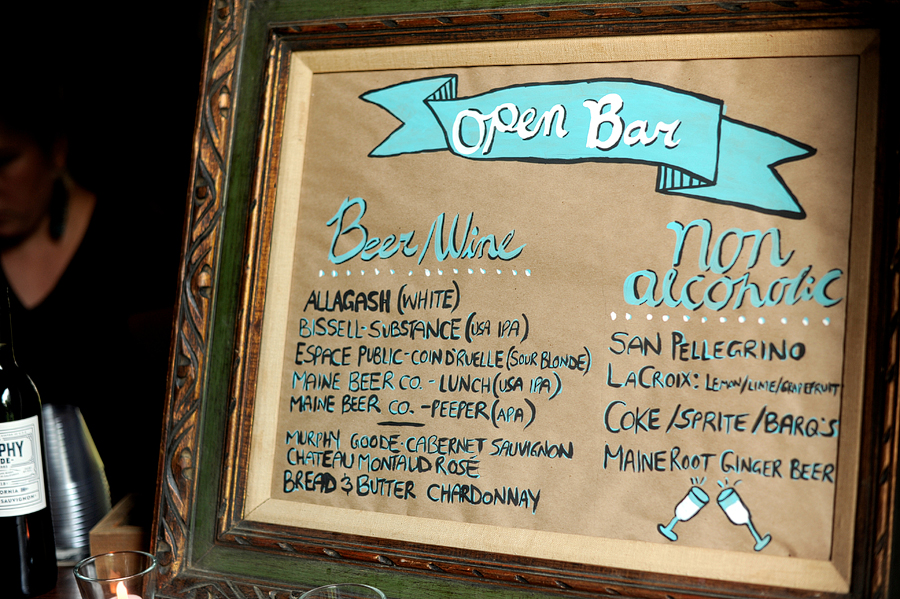 Open Bar
Beer/Wine
ALLAGASH (WHITE)
BISSELL-SUBSTANCE (USA IPA)
ESPACE PUBLIC-COIN D'RUELLE (SOUR BLONDE)
MAINE BEER CO. - LUNCH (USA IPA)
MAINE BEER CO. - PEEPER (APA)
MURPHY GOODE-CABERNET SAUVIGNON
CHATEAU MONTAUD ROSÉ
BREAD & BUTTER CHARDONNAY
Non
alcoholic
SAN PELLEGRINO
LACROIX: LEMON/LIME/GRAPEFRUIT
COKE/SPRITE/BARQ'S
MAINE ROOT GINGER BEER
PHY
DE
SAUVIGNON